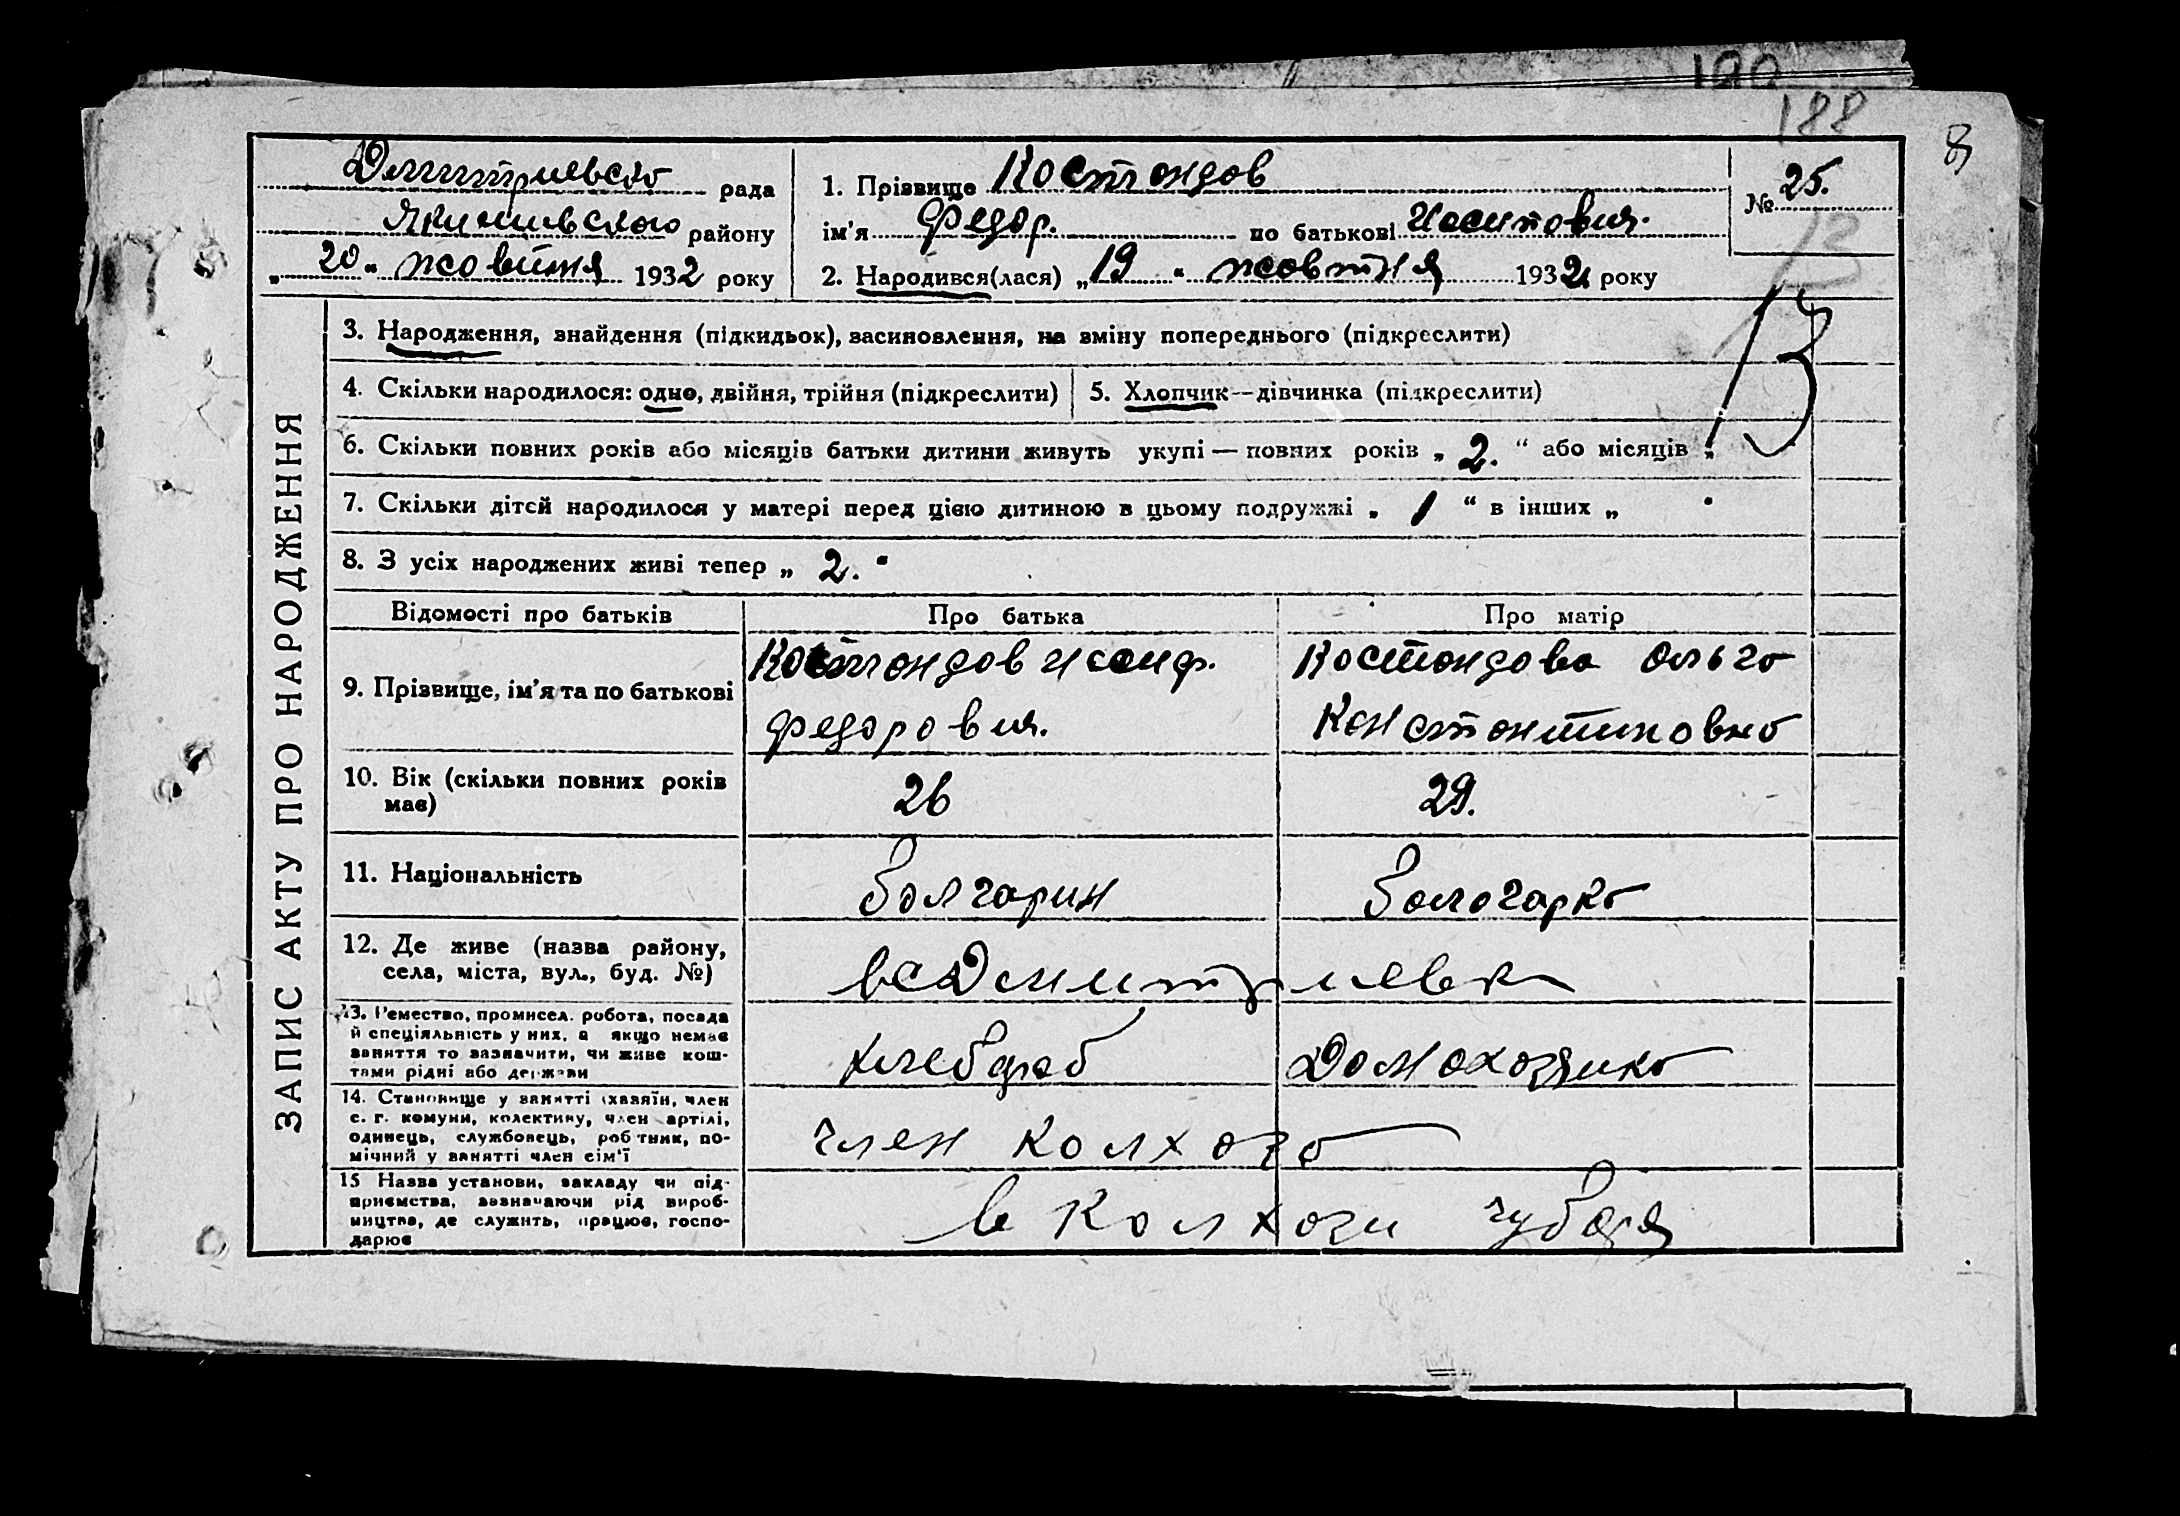 188
8
Дмитриевсько рада
Якимивського району
„ 20 “ жовтня 1932 року
1. Прізвище Костондов
ім'я Федор. по батькові Иосипович.
2. Народився(лася) „ 19 “ жовтня 1932 року
№ 25.
13
ЗАПИС АКТУ ПРО НАРОДЖЕННЯ
3. Народження, знайдення (підкидьок), засиновлення, на зміну попереднього (підкреслити)
4. Скільки народилося: одно, двійня, трійня (підкреслити)
5. Хлопчик—дівчинка (підкреслити)
6. Скільки повних років або місяців батьки дитини живуть укупі — повних років „ 2. “ або місяців „
7. Скільки дітей народилося у матері перед цією дитиною в цьому подружжі „ 1 “ в інших „ “
8. З усіх народжених живі тепер „ 2. “
Відомості про батьків Про батька Про матір
9. Прізвище, ім'я та по батькові
Костондов Иосиф.
Федорович.
Костондова Ольга
Константиновна
10. Вік (скільки повних років має)
26
29.
11. Національність
болгарин
болгарка
12. Де живе (назва району,
села, міста, вул., буд. №)
в с Дмитриевка
13. Ремество, промисел. робота, посада
й спеціяльність у них, а якщо немає
заняття то зазначити, чи живе кош-
тами рідні або держави
хлебороб
Домохозяйка
14. Становище у занятті (хазяїн, член
с. г. комуни, колективу, член артілі,
одинець, службовець, робітник, по-
мічний у занятті член сім'ї
член колхоза
15 Назва установи, закладу чи під-
приємства, зазначаючи рід вироб-
ництва, де служить, працює, госпо-
дарює
в колхози Чубаря